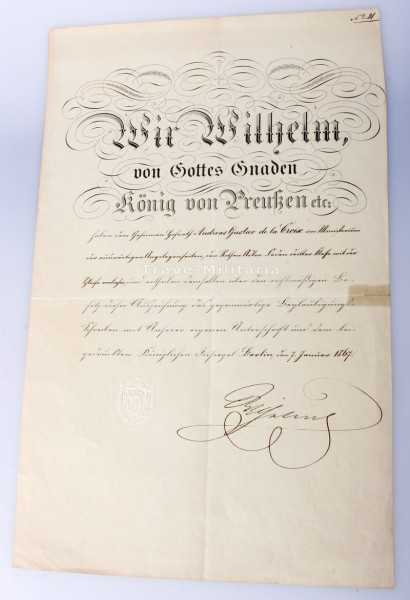 No 21
Wir Wilhelm,
von Gottes Gnaden
König von Preußen etc:
haben dem Geheimen Hofrath Andreas Gustav de la Croix im Ministerium
der auswärtigen Angelegenheiten, den Rothen Adler-Orden dritter Klasse mit der
Schleife verliehen und ertheilen demselben über den rechtmäßigen Be-
Trave-Militaria
sitz dieser Auszeichnung das gegenwärtige Beglaubigungs-
Schreiben mit Unserer eigenen Unterschrift und dem bei-
gedruckten Königlichen Insiegel. Berlin, den 7. Januar 1867.
Wilhelm